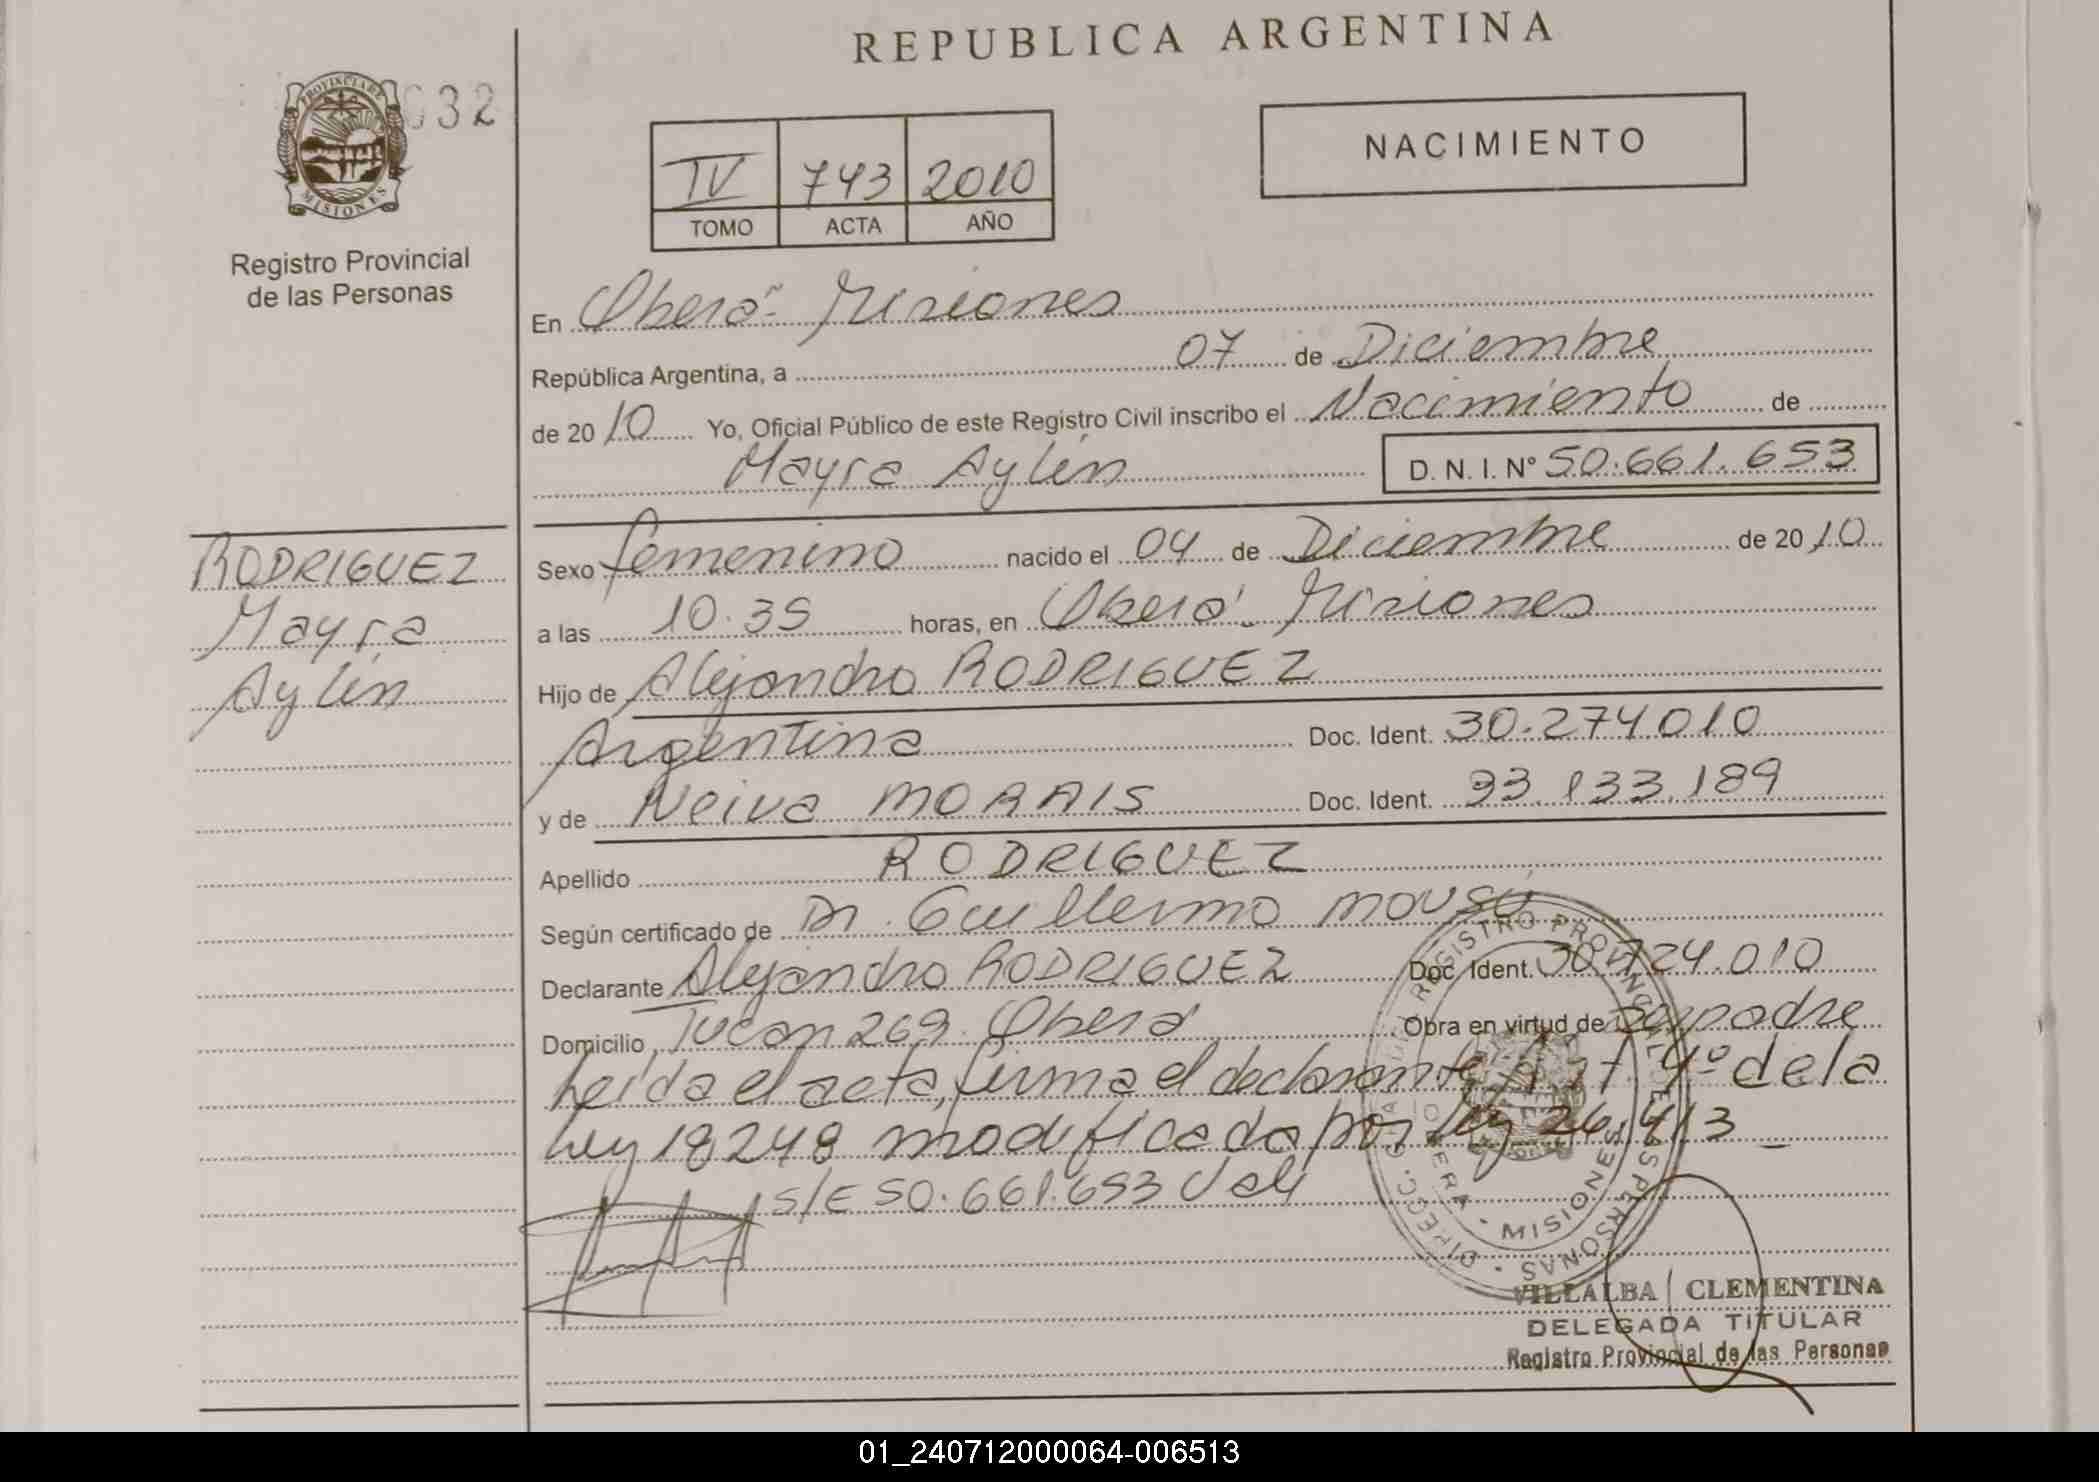 REPUBLICA ARGENTINA
032
PROVINCIA DE
MISIONES
Registro Provincial
de las Personas
IV 743 2010
TOMO ACTA AÑO
NACIMIENTO
En Oberá - Misiones
República Argentina, a 07 de Diciembre
de 2010 Yo, Oficial Público de este Registro Civil inscribo el Nacimiento de
Mayra Aylén D. N. I. Nº 50.661.653
RODRIGUEZ
Mayra
Aylén
Sexo femenino nacido el 04 de Diciembre de 2010
a las 10.35 horas, en Oberá. Misiones
Hijo de Alejandro RODRIGUEZ
Argentina Doc. Ident. 30.274.010
y de Neiva MORAIS Doc. Ident. 93.133.189
Apellido RODRIGUEZ
Según certificado de Dr. Guillermo
Declarante Alejandro RODRIGUEZ Doc. Ident. 30.724.010
Domicilio Tucan 269. Oberá Obra en virtud de Ser padre
Leída el acta, firma el declarante Art. 4º de la
Ley 18248 modificada por Ley 26.413 _
S/E 50.661.653 Vale
REGISTRO PROVINCIAL DE LAS PERSONAS
MISIONES
VILLALBA CLEMENTINA
DELEGADA TITULAR
Registro Provincial de las Personas
01_240712000064-006513